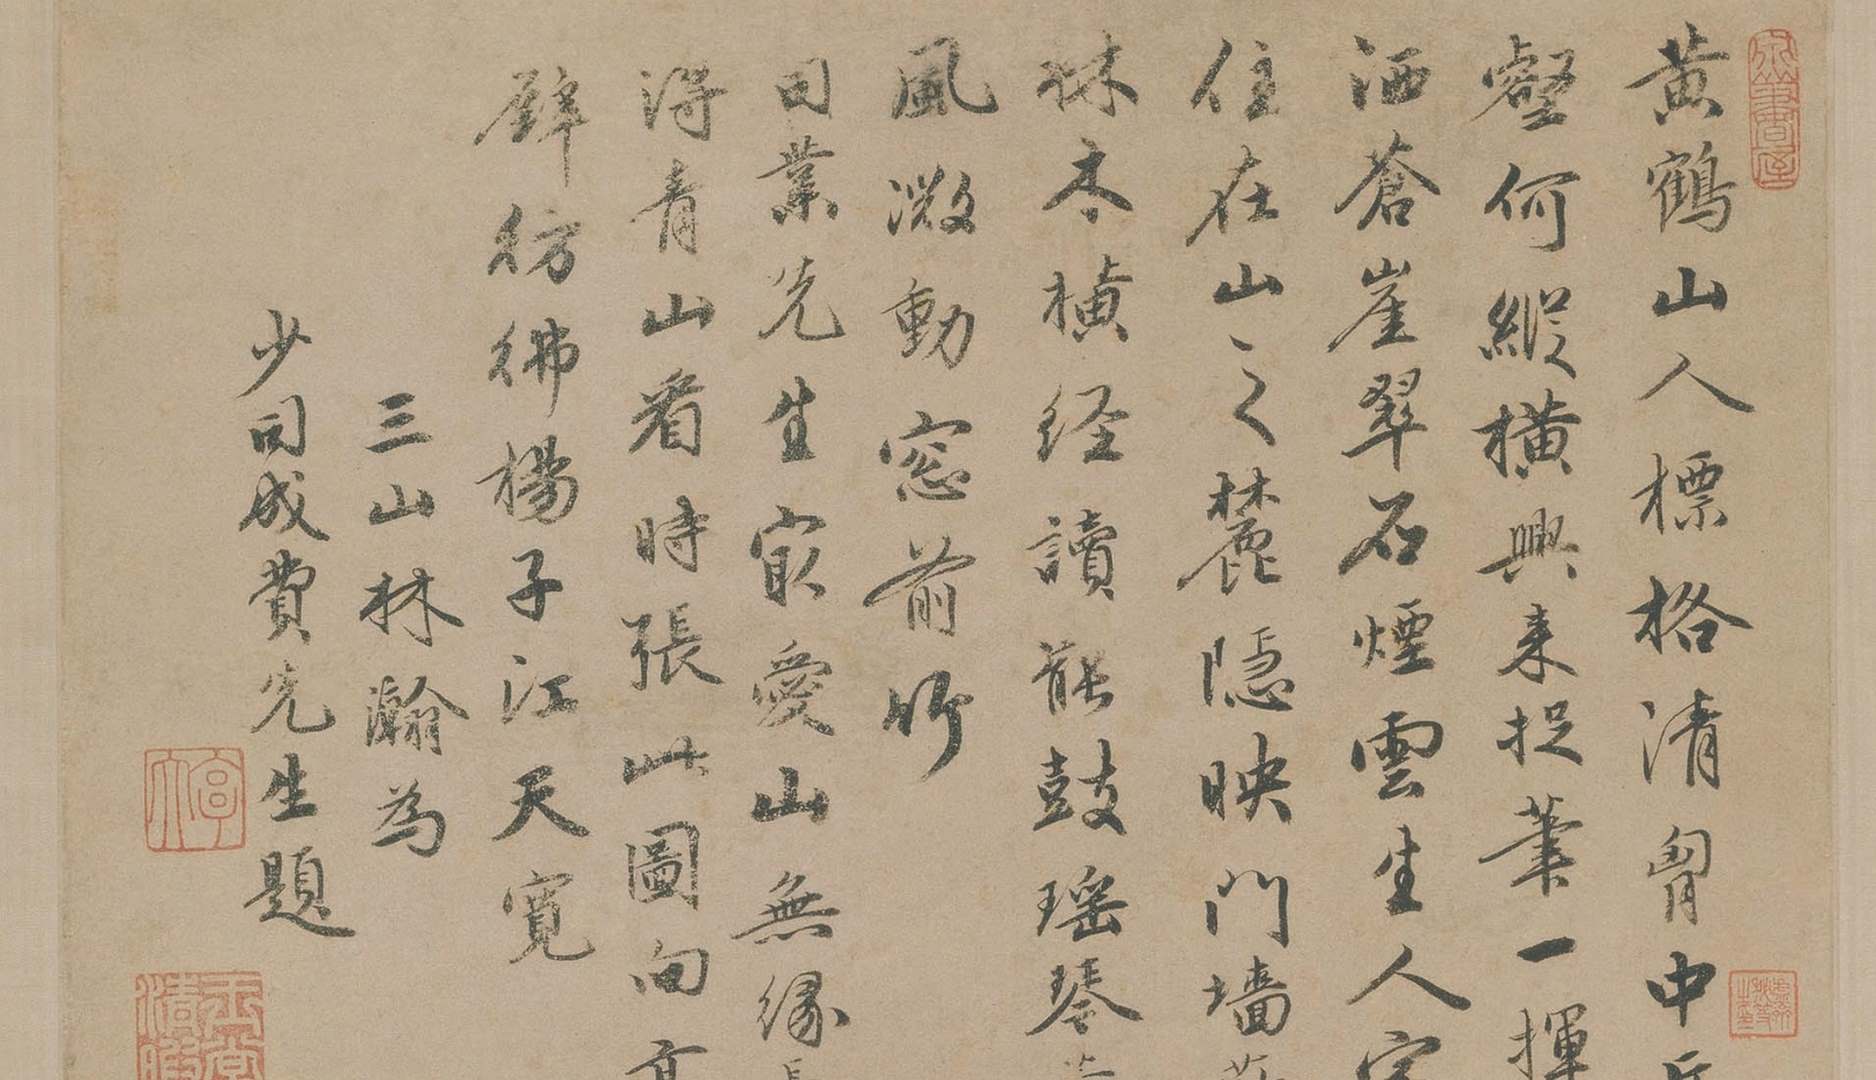 黄鶴山人標格清胷中丘
壑何縱橫興来捉筆一揮
洒蒼崖翠石煙雲生人家
住在山之麓隱映門墻
林木橫経讀罷鼓瑶琴
風微動窓前竹
司業先生㝡愛山無緣
得青山看時張此圖向高
壁彷彿楊子江天寬
三山林瀚為
少司成費先生題